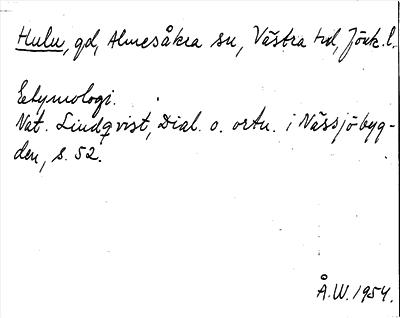 Hulu, gd, Almesåkra sn, Västra hd, Jönk. l.
Etymologi.
Nat. Lindqvist, Dial. o. ortn. i Nässjöbyg-
den, s. 52.
Å.W. 1954.